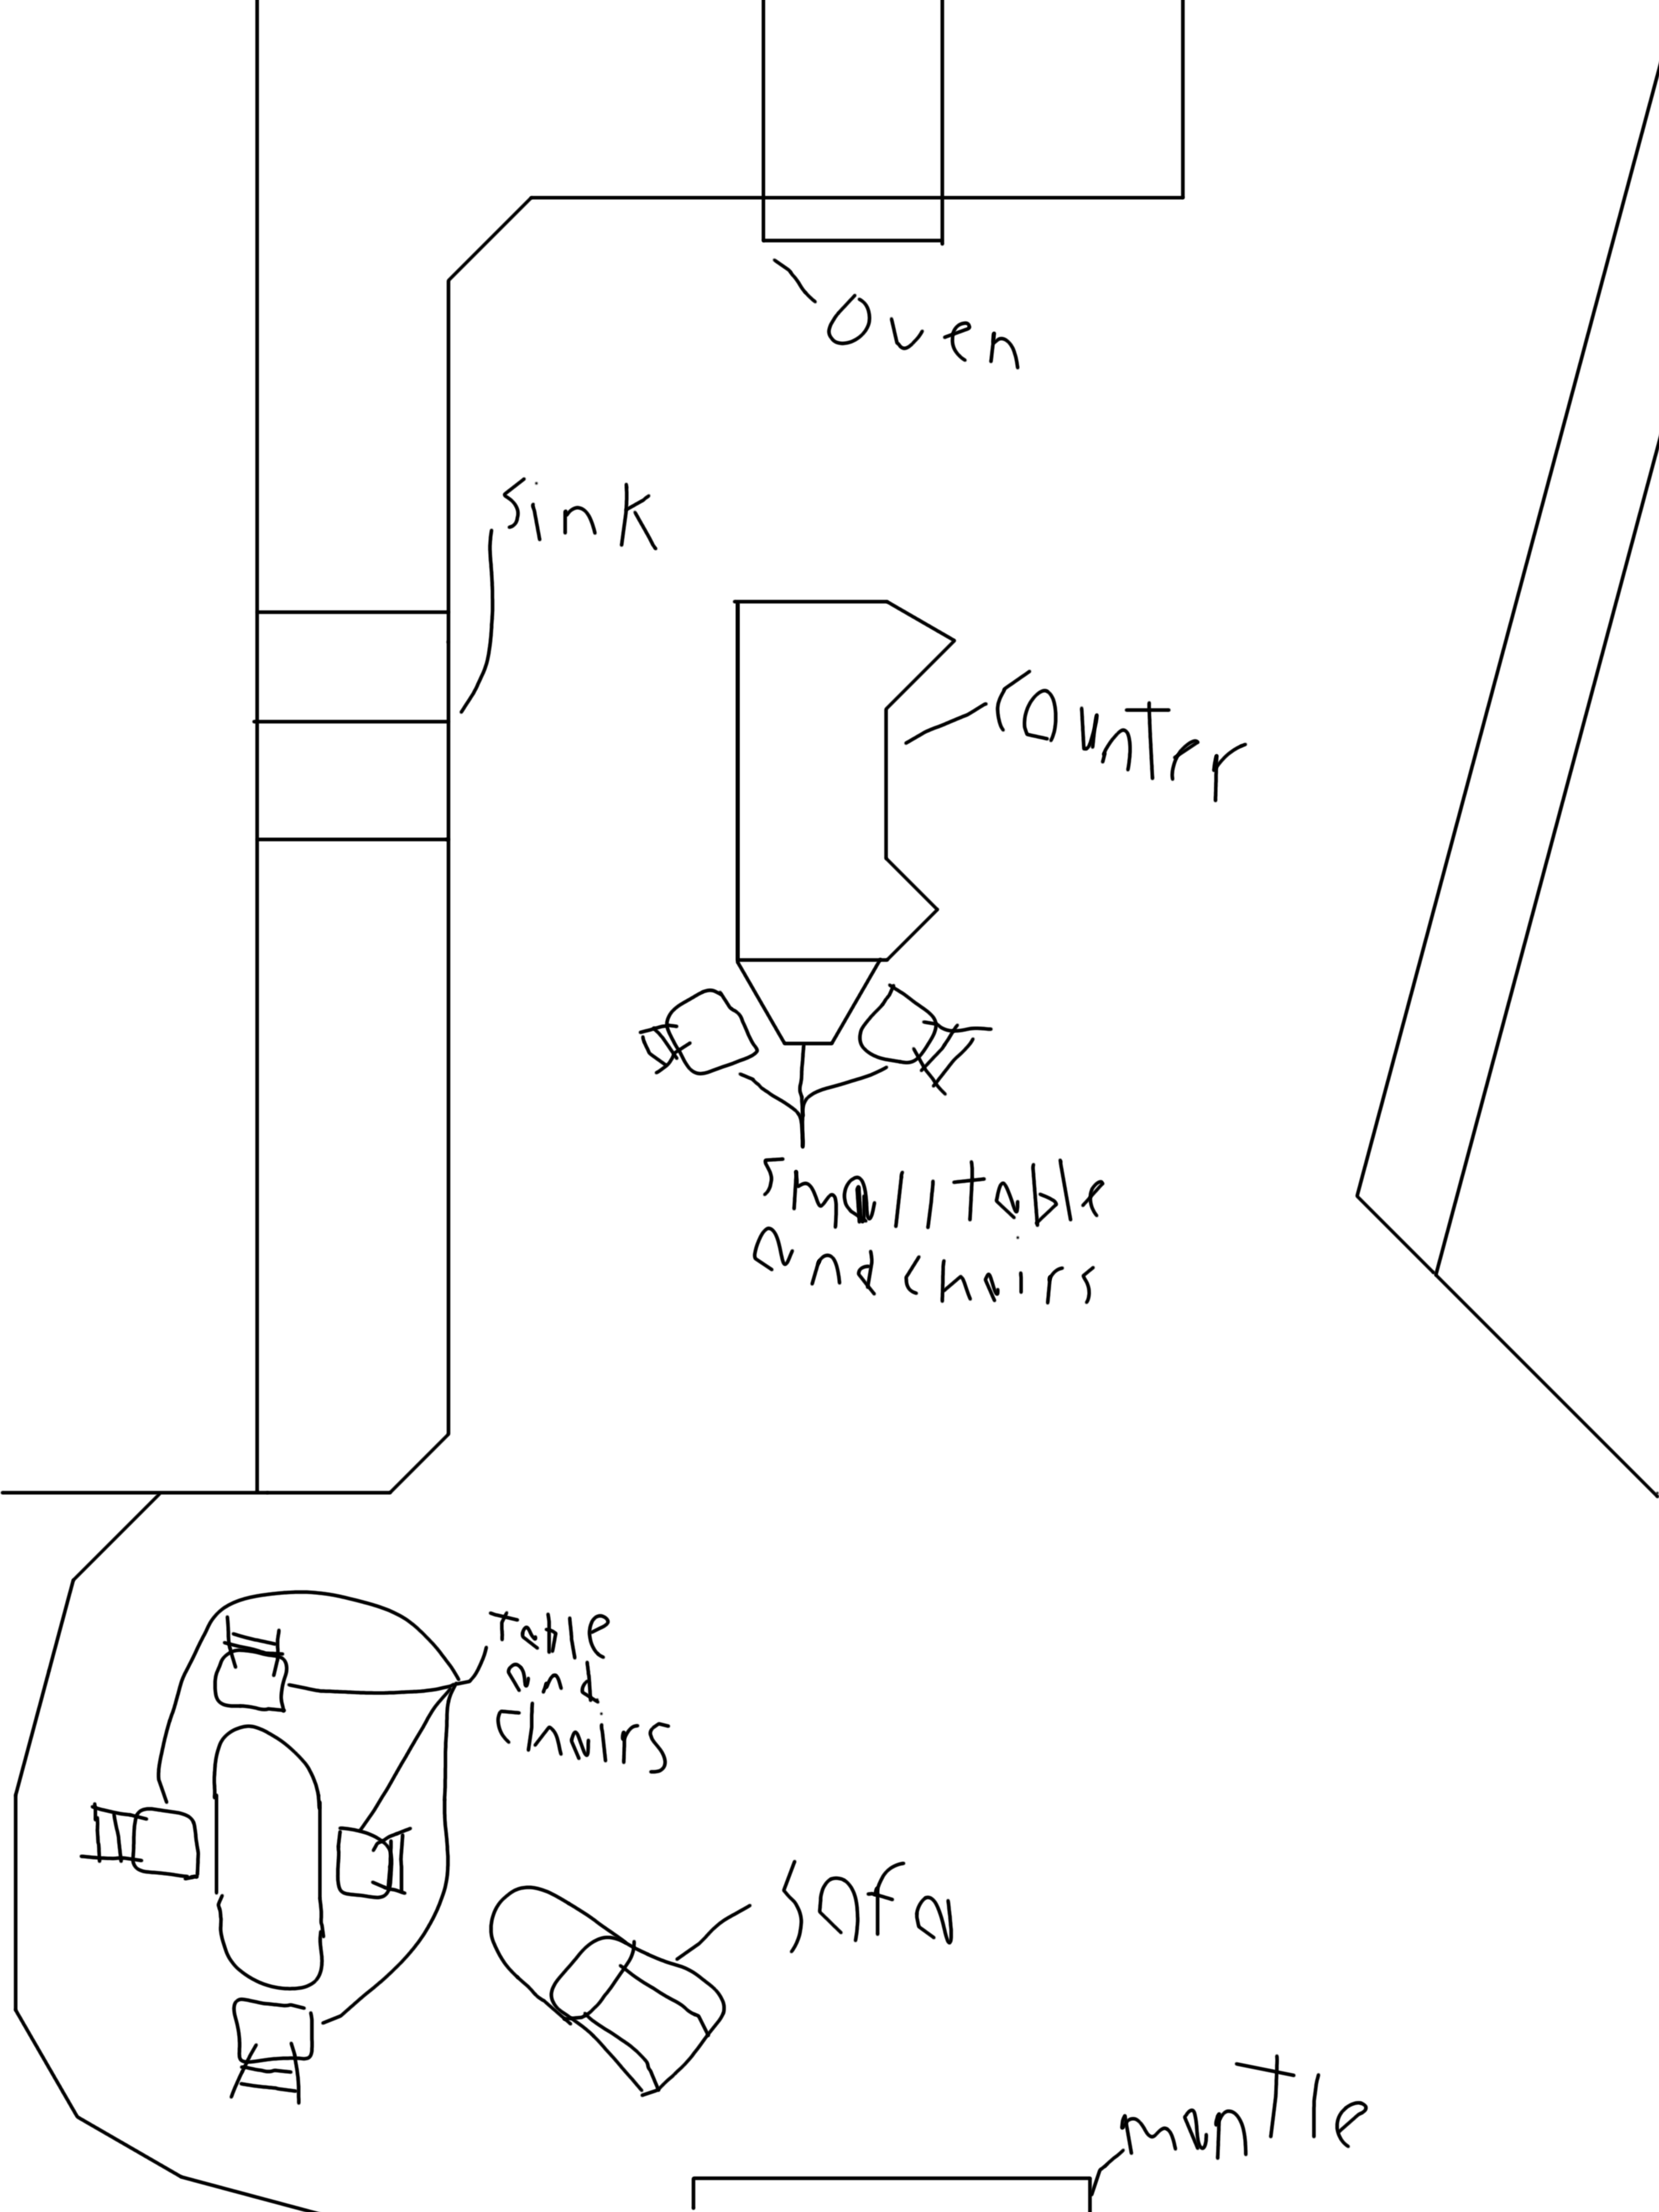 oven
sink
counter
small table
and chairs
table
and
chairs
sofa
mantle